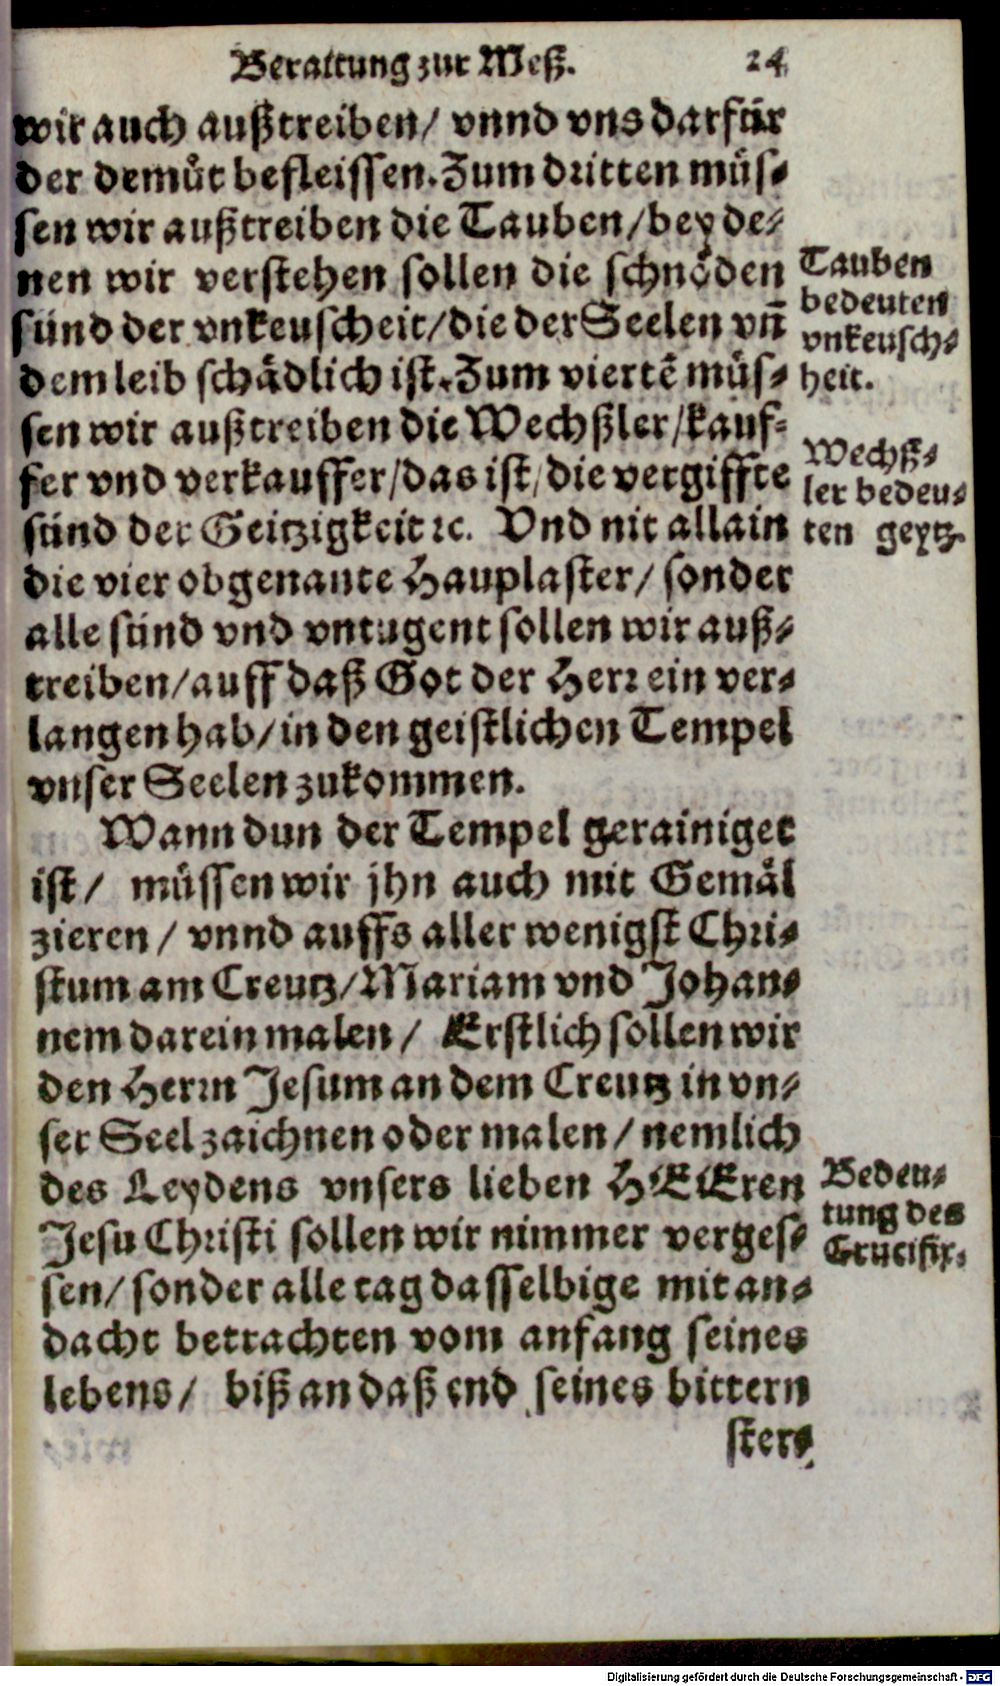 Beraittung zur Meß. 24
wir auch außtreiben/ vnnd vns darfür
der demůt befleissen. Zum dritten müs-
sen wir außtreiben die Tauben/ bey de-
nen wir verstehen sollen die schnöden
sünd der vnkeuscheit/ die der Seelen vn̄
dem leib schädlich ist. Zum viertē müs-
sen wir außtreiben die Wechßler/ kauf-
fer vnd verkauffer/ das ist/ die vergiffte
sünd der Geitzigkeit ꝛc. Vnd nit allain
die vier obgenante Hauplaster/ sonder
alle sünd vnd vntugent sollen wir auß-
treiben/ auff daß Got der Herr ein ver-
langen hab/ in den geistlichen Tempel
vnser Seelen zukommen.
Wann dun der Tempel gerainiget
ist/ müssen wir jhn auch mit Gemäl
zieren/ vnnd auffs aller wenigst Chri-
stum am Creutz/ Mariam vnd Johan-
nem darein malen/ Erstlich sollen wir
den Herrn Jesum an dem Creutz in vn-
ser Seel zaichnen oder malen/ nemlich
des Leydens vnsers lieben HEEren
Jesu Christi sollen wir nimmer verges-
sen/ sonder alle tag dasselbige mit an-
dacht betrachten vom anfang seines
lebens/ biß an daß end seines bittern
sters
Tauben
bedeuten
vnkeusch-
heit.
Wechß-
ler bedeu-
ten geytz.
Bedeu-
tung des
Crucifix.
Digitalisierung gefördert durch die Deutsche Forschungsgemeinschaft - DFG